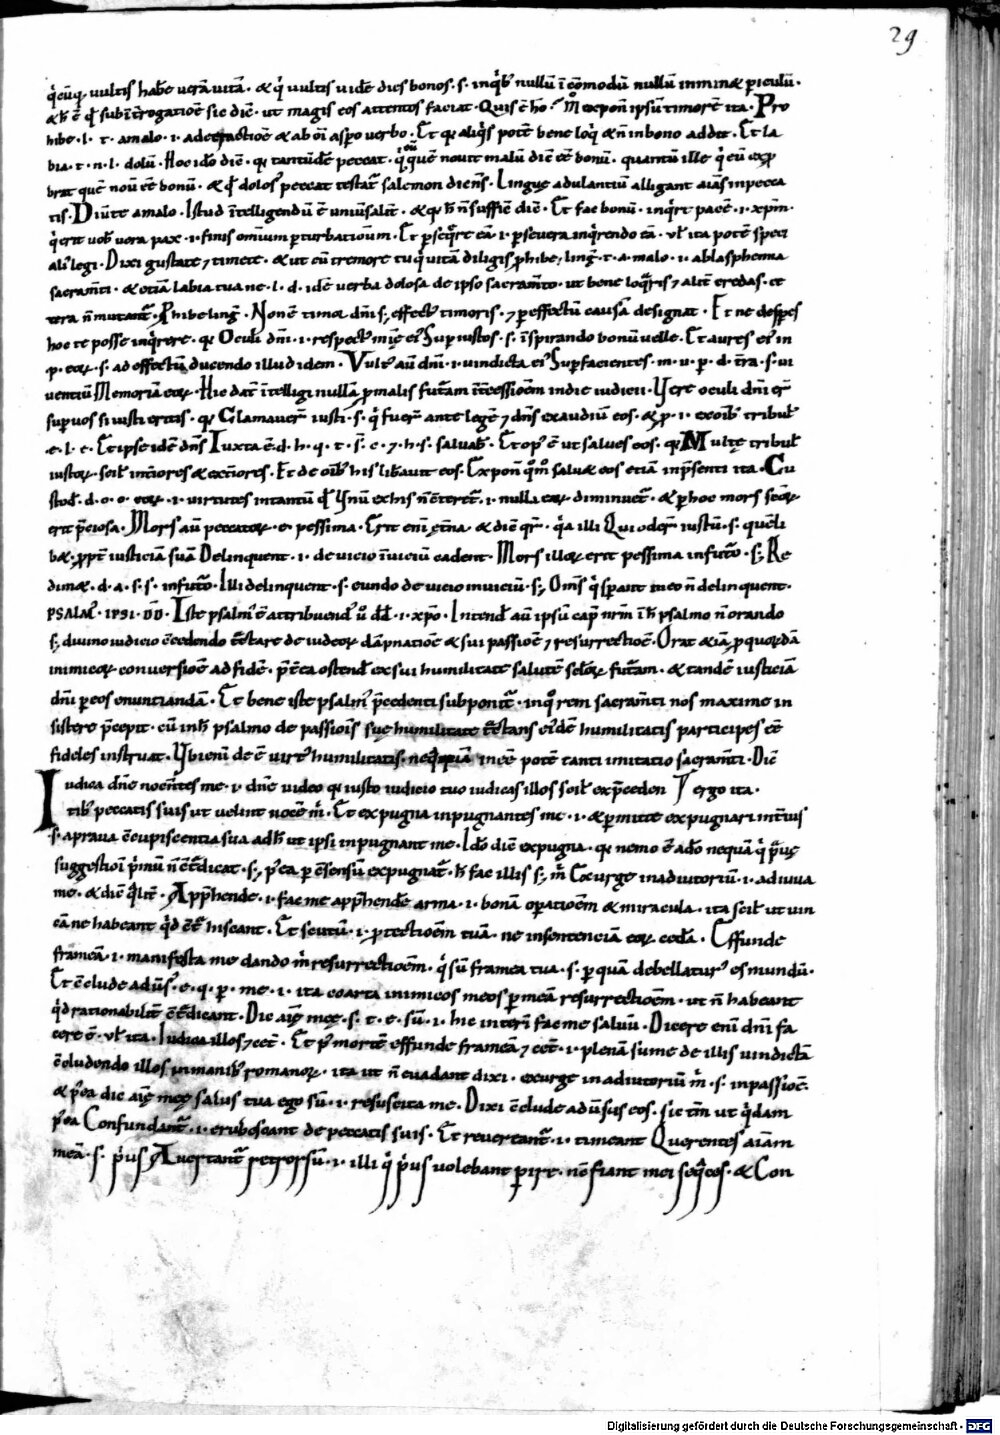 29
q̇cūq, uultis habē uerā uitā · & q̇ uultis uidē dies bonos · s · inq̇b; nullū īcōmodū nullū inminæ piculū ·
& h̄ ē qđ subīt̄rogatiōe sic diē · ut magis eos attentos faciat · Quis ē hō · m̊ exponit ipsū timorē ita · Pro
hibe · l · t · a malo · i · a detractiōe & ab oī aspo uerbo · Et qr aliq̇s potē bene loq̇ & n̄ in bono addit · Et la
bia · t · n · l · dolū · Hoc idō diē · qr tantūdē peccat · q̇ quē nouit malū diē eē bonū · quantū ille q̇ eū exp
brat quē nou eē bonū · & qđ dolos peccat testat salemon diēns · Linguę adulantiū alligant aīas in pecca
tis · Diūte a malo · Istud ītelligendū ē uniūsalit · & qr h̄ n̄ suffic̄ diē · Et fac bonū · inq̇re pacē · i · xpm̄ ·
q̇ erit uob uera pax · i · finis omnium pturbationum · Et pseq̇re eā · i · pseuera inq̇rendo eā · ut ita potē speci
ali legi · Dixi gustate ⁊ timete · & ut cū tremore tu q̇ uitā diligis phibe, ling · t · a · malo · i · a blasphemia
sacram̄ti · & etiā labia tua ne · l · d · idē uerba dolosa de ipso sacram̄to · ut bene loq̇ris ⁊ alit credas · ce
tera n̄ mutant · Phibe ling · Non ē timor dn̄i s; effect timoris · ⁊ p effectū causā designat · Et ne despes
hoc te posse inq̇rere · qr Oculi dn̄i · i · respect mīę ei Sup iustos · s · īspirando bonū uelle · Et aures ei in
p · eor · s · ad effectū ducendo illud idem · Vult aū dn̄i · i · uindicta ei Sup facientes · m · u · p · d · t̄ra · s · ui
uentiū Memoriā eor · Hic dat ītelligi nullā p malis futām ītcessiōem in die iudicii · Vere oculi dn̄i er
sup uos si iusti eritis · qr Clamauer iusti · s · q̇ fuer ante legē ⁊ dn̄s exaudiū eos · & p · i · ex oīb tribul
· e · l · e · Et ipse idē dn̄s Iuxta ē · d · h · q · t · s · c · ⁊ · h · s · saluab · Et op ē ut salues eos · qr Multę tribul
iustor · scil int̄iores & ext̄iores · Et de oīb his libauit eos · Expon q̇m salu& eos etiā in p̄senti ita · Cu
stod · d · o · o · eor · i · uirtutes in tantū qđ Vnū ex his n̄ c̄teret · i · nulli eor diminuet · & p hoc mors scōr
erit p̄ciosa · Mors aū peccator · e · pessima · Erit enī ęt̄na · & diē qr · q̇a illi Qui oder iustū · s · quēli
b& ppt iusticiā suā Delinquent · i · de uicio ī uiciū cadent · Mors illor erit pessima in futo · s; Re
dim& · d · a · s · s · in futo · Illi delinquent · s · eundo de uicio in uiciū · s; Om̄s q̇ spant in eo n̄ delinquent ·
PSALM · IPSI · DD · Iste psalm ē attribuend u dd · i · xpo · Intend aū ipsū cap nrm̄ ī h̄ psalmo n̄ orando
s; diuino iudicio c̄cedendo t̄ctare de iudeor dāpnatiōe & sui passiōe ⁊ resurrectiōe · Orat &iā p quordā
inimicor conuersiōe ad fidē · p̄t̄ea ostend ex sui humilitate salutē scōr · futām · & tandē iusticiā
dn̄i p eos enuntiandā · Et bene iste psalm p̄cedenti subponit · in quo rem sacram̄ti nos maxime in
sistere p̄cepit · cū in h̄ psalmo de passiōis suę humilitate t̄ctans eidē humilitatis participes eē
fideles instruat · Vbi enī deē uirt humilitatis · nequaquā inēē potē tanti imitatio sacram̄ti · Diē
Iudica dn̄e nocentes me · v dn̄e uideo qr iusto iudicio tuo iudicas illos scil ex p̄ceden ergo ita ·
tib peccatis suis ut uelint nocēm · Et expugna inpugnantes me · i · & pmitte expugnari int̄ius
· s · a praua c̄cupiscentia sua adh̄ ut ipsi inpugnant me · Idō diē expugna · qr nemo ē adō nequā q̇ puę
suggestiōi p̄mū n̄ c̄t̄dicat · s; p̄ ea p c̄sensū expugnat · h̄ fac illis s; m̄ Exurge in adiutoriū · i · adiuua
me · & diē q̇lit · Apphende · i · fac me apphende arma · i · bonā operatiōem & miracula · ita scil ut uin
cā ne habeant q̇d c̄t̄ hiscant · Et scutū · i · ptectiōem tuā · ne in sentenciā eor cedā · Effunde
frameā · i · manifesta me dando m̄ resurrectiōem · q̇ sū framea tua · s · p quā debellatur es mundū ·
Et c̄clude adus · e · q · p · me · i · ita coarta inimicos meos p meā resurrectiōem · ut n̄ habeant
q̇d rationabilit c̄t̄dicant · Dic aīę męę · s · t · e · sū · i · hic interī fac me saluū · Dicere enī dn̄i fa
cere ē · ul ita · Iudica illos ⁊ cet · Et p mortē effunde frameā ⁊ cet · i · plenā sume de illis uindictā
c̄cludendo illos in manib romanor · ita ut n̄ euadant dixi · exurge in adiutoriū m̄ · s · in passiōe ·
& p̄ ea dic aīę męę salus tua ego sū · i · resuscita me · Dixi c̄clude adūsus eos · sic tm̄ ut q̇dam
p̄ ea Confundant · i · erubescant de peccatis suis · Et reuertant · i · timeant Querentes aīam
meā · s · ṗus Auertant retrorsū · i · illi q̇ ṗus uolebant pire · nō fiant mei seq̇ces · & Con
Digitalisierung gefördert durch die Deutsche Forschungsgemeinschaft - DFG